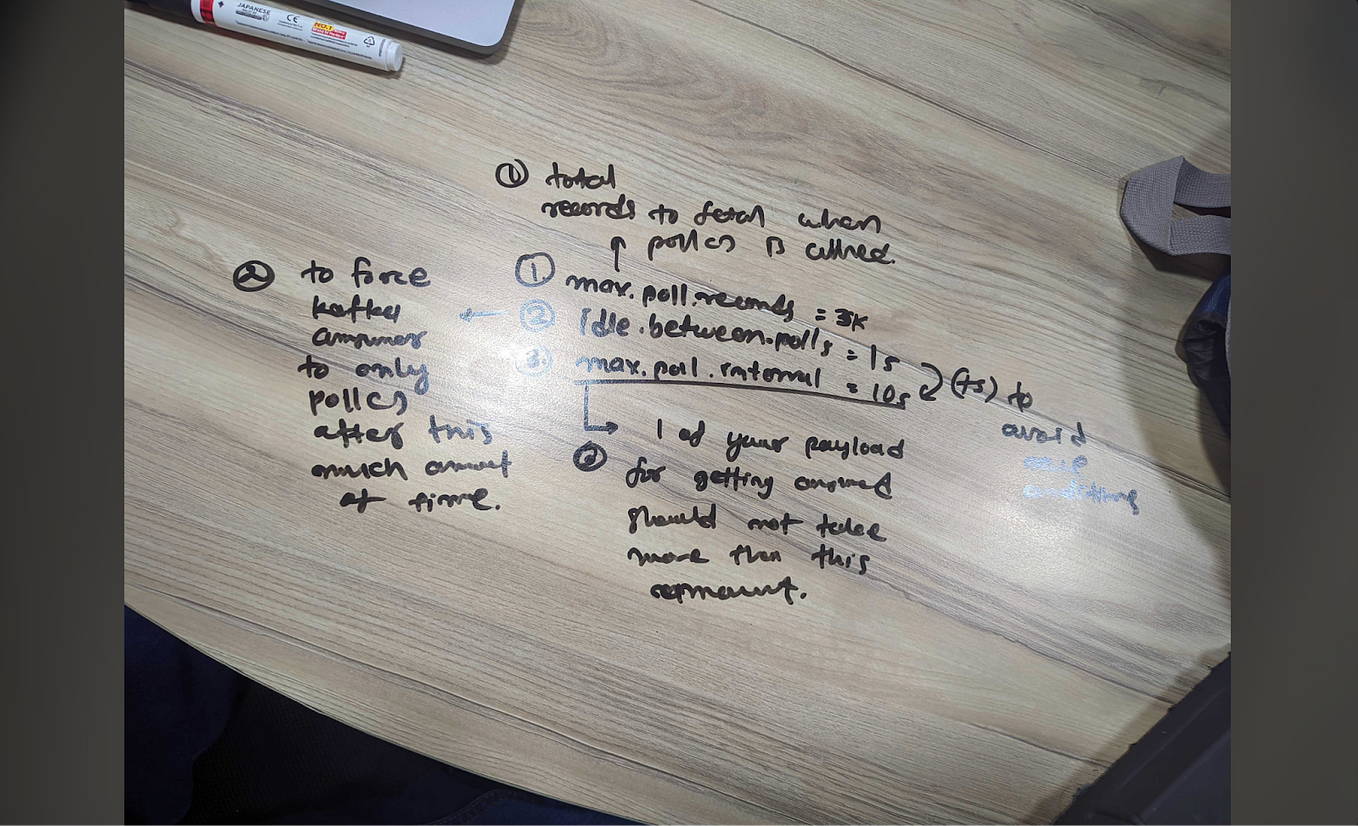 JAPANESE
CE
NO.1
① total
records to fetch when
poll() is called.
① max.poll.records = 3K
② idle.between.polls = 1s
③ max.poll.interval = 10s
(ts) to
avoid
② to force
kafka
consumer
to only
poll()
after this
much amount
of time.
1 of your payload
for getting consumed
should not take
more than this
amount.